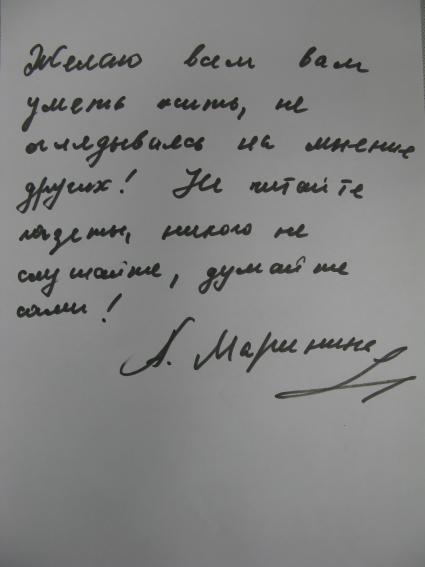 Желаю всем вам
уметь жить, не
оглядываясь на мнение
других! Не читайте
газеты, никого не
слушайте, думайте
сами!
А. Маринина